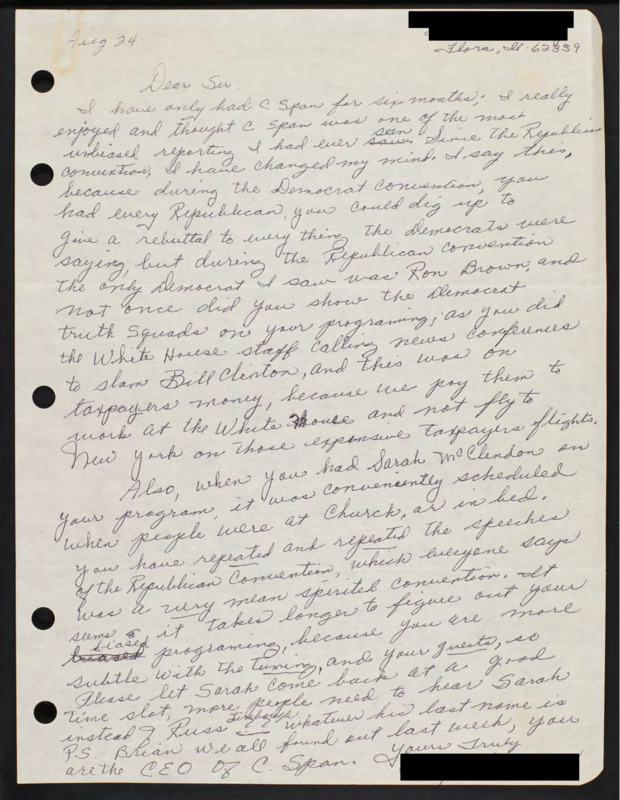 Aug 24
Flora, Ill. 62839
Dear Sir:
I have only had C Span for six months; I really
enjoyed and thought C Span was one of the most
unbiased reporting I had ever seen saw. Since the Republican
convention, I have changed my mind. I say this,
because during the Democrat convention, you
had every Republican, you could dig up to
give a rebuttal to every thing the Democrats were
saying, but during the Republican convention
the only Democrat I saw was Ron Brown, and
not once did you show the Democrat
truth squads on your programing, as you did
the White House staff calling news conferences
to slam Bill Clinton, and this was on
taxpayers money, because we pay them to
work at the White House and not fly to
New York on those expensive taxpayers flights.
Also, when you had Sarah McClendon on
your program, it was conveniently scheduled
when people were at Church, or in bed.
you have repeated and repeated the speeches
of the Republican Convention, which everyone says
was a very mean spirited convention. It
seems it takes longer to figure out your
biased programing, because you are more
subtle with the timing, and your guests, so
Please let Sarah come back at a good
time slot, more people need to hear Sarah
instead of Russ whatever his last name is
P.S. Brian we all found out last week, you
are the CEO of C. Span. Yours Truly